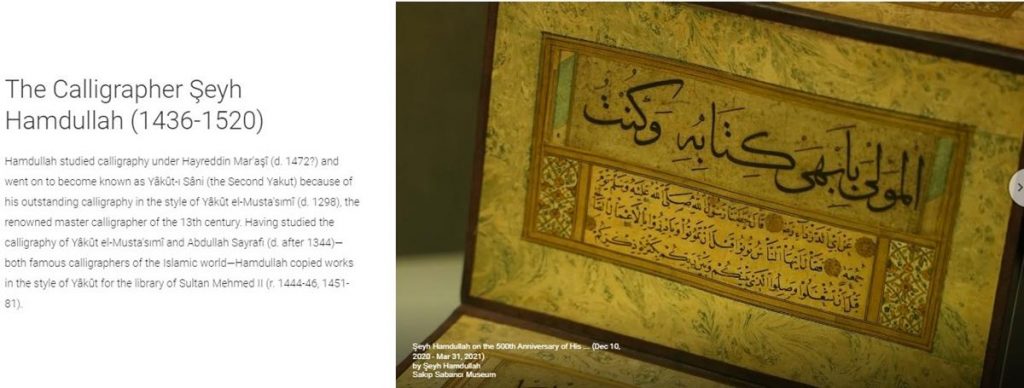 The Calligrapher Şeyh
Hamdullah (1436-1520)
Hamdullah studied calligraphy under Hayreddin Mar'aşî (d. 1472?) and
went on to become known as Yâkût-ı Sâni (the Second Yakut) because of
his outstanding calligraphy in the style of Yâkût el-Musta'sımî (d. 1298), the
renowned master calligrapher of the 13th century. Having studied the
calligraphy of Yâkût el-Musta'sımî and Abdullah Sayrafi (d. after 1344)—
both famous calligraphers of the Islamic world—Hamdullah copied works
in the style of Yâkût for the library of Sultan Mehmed II (r. 1444-46, 1451-
81).
المولى بابهى كتابه وكنت
قال خطبنا رسول الله صلى الله عليه وسلم يوم
جمعة فقال يا ايها الناس توبوا قبل ان تموتوا وبادروا بالاعمال
قبل ان تشغلوا وصلوا الذي بينكم وبين ربكم بكثرة ذكركم
Şeyh Hamdullah on the 500th Anniversary of His ... (Dec 10,
2020 - Mar 31, 2021)
by Şeyh Hamdullah
Sakıp Sabancı Museum